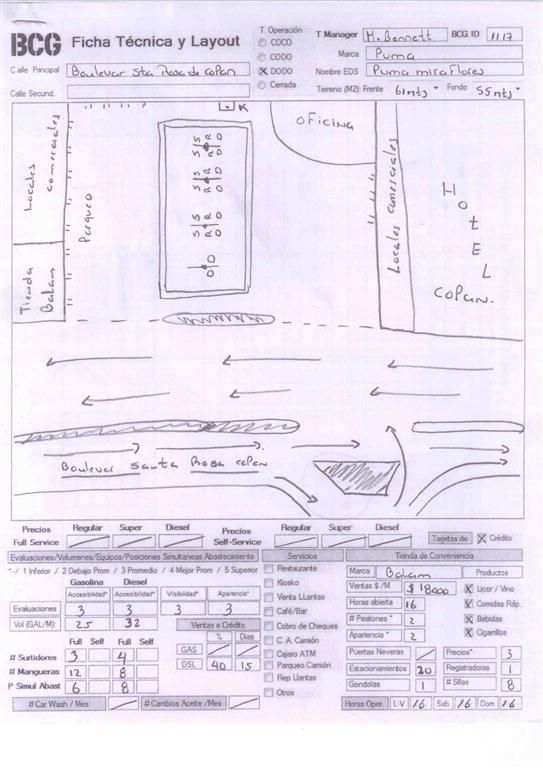 BCG Ficha Técnica y Layout
T. Operación
COCO
CODO
DODO
Cerrada
T Manager H. Bennett BCG ID 1117
Marca Puma
Calle Principal Boulevar Sta Rosa de copan
Nombre EDS Puma miraflores
Calle Secund.
Terreno (M2): Frente 61mts Fondo 55mts
Locales comerciales
Parqueo
Tienda Balam
S S R D
S S R D
S S R D
oficina
Locales comerciales
HOTEL
copan.
Boulevar santa Rosa copan
Precios Regular Super Diesel Precios Regular Super Diesel
Full Service Self-Service
Tarjetas de Crédito
Evaluaciones/Volumenes/Equipos/Posiciones Simultaneas Abastecimiento
Servicios
Tienda de Conveniencia
*-/ 1 Inferior / 2 Debajo Prom / 3 Promedio / 4 Mejor Prom / 5 Superior
Gasolina Diesel
Accesibilidad* Accesibilidad* Visibilidad* Aparencia*
Evaluaciones 3 3 3 3
Vol (GAL/M): 25 32
Ventas a Crédito
% Dias
GAS
DSL 40 15
Full Self Full Self
# Surtidores 3 4
# Mangueras 12 8
P Simul Abast 6 8
# Car Wash / Mes # Cambios Aceite /Mes
Restaurante
Kiosko
Venta LLantas
Café/Bar
Cobro de Cheques
C. A. Camión
Cajero ATM
Parqueo Camión
Rep Llantas
Otros
Marca Balam Productos
Ventas $ /M $ 18000 Licor / Vino
Horas abierta 16 Comidas Ráp.
# Peatones * 2 Bebidas
Apariencia * 2 Cigarrilos
Puertas Neveras Precios* 3
Estacionamientos 20 Registradoras 1
Gondolas 1 # Sillas 8
Horas Oper. L-V 16 Sab 16 Dom 16